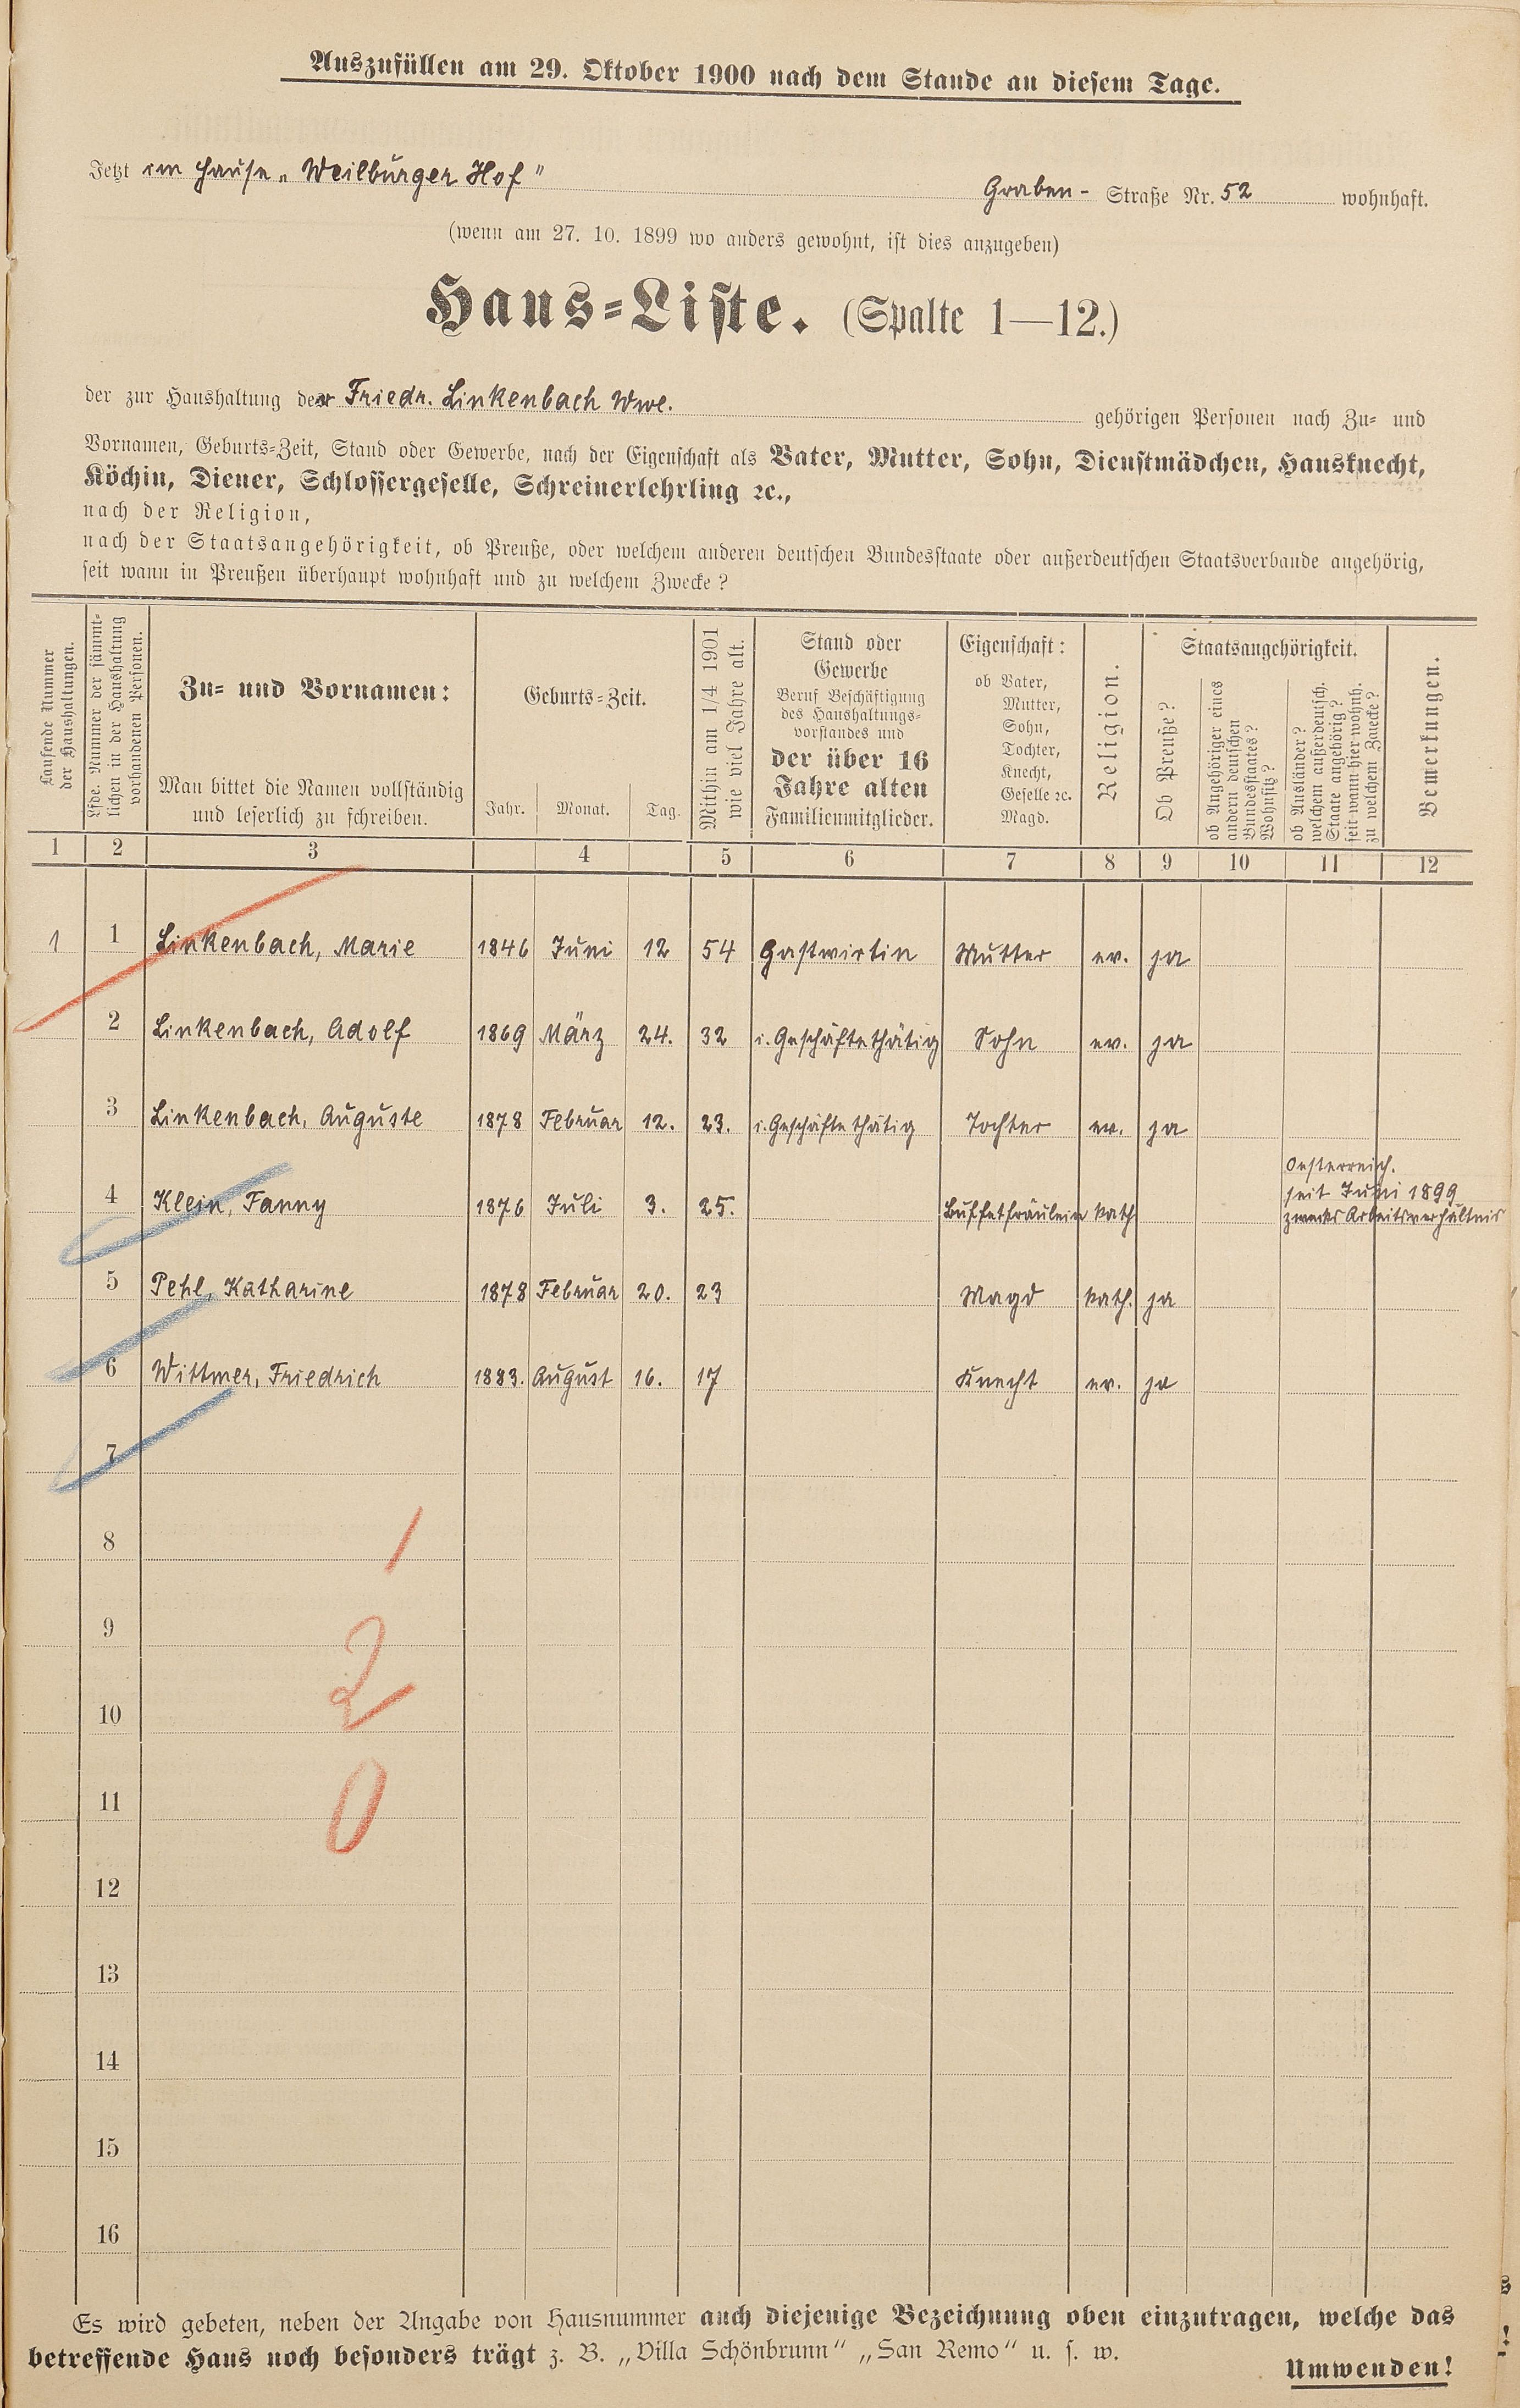 Auszufüllen am 29. Oktober 1900 nach dem Stande an diesem Tage.
Jetzt im Hause „Weilburger Hof" Graben- Straße Nr. 52 wohnhaft.
(wenn am 27. 10. 1899 wo anders gewohnt, ist dies anzugeben)
Haus-Liste. (Spalte 1—12.)
der zur Haushaltung der Friedr. Linkenbach Wwe. gehörigen Personen nach Zu- und
Vornamen, Geburts-Zeit, Stand oder Gewerbe, nach der Eigenschaft als Vater, Mutter, Sohn, Dienstmädchen, Hausknecht,
Köchin, Diener, Schlossergeselle, Schreinerlehrling ꝛc.,
nach der Religion,
nach der Staatsangehörigkeit, ob Preuße, oder welchem anderen deutschen Bundesstaate oder außerdeutschen Staatsverbande angehörig,
seit wann in Preußen überhaupt wohnhaft und zu welchem Zwecke?
Laufende Nummer
der Haushaltungen.
Lfde. Nummer der sämmt-
lichen in der Haushaltung
vorhandenen Personen.
Zu- und Vornamen:
Man bittet die Namen vollständig
und leserlich zu schreiben.
Geburts-Zeit.
Jahr. Monat. Tag.
Mithin am 1/4 1901
wie viel Jahre alt.
Stand oder
Gewerbe
Beruf Beschäftigung
des Haushaltungs-
vorstandes und
der über 16
Jahre alten
Familienmitglieder.
Eigenschaft:
ob Vater,
Mutter,
Sohn,
Tochter,
Knecht,
Geselle ꝛc.
Magd.
Religion.
Staatsangehörigkeit.
Ob Preuße?
ob Angehöriger eines
andern deutschen
Bundesstaates?
Wohnsitz?
ob Ausländer?
welchem außerdeutsch.
Staate angehörig?
seit wann hier wohnh.
zu welchem Zwecke?
Bemerkungen.
1 2 3 4 5 6 7 8 9 10 11 12
1 1 Linkenbach, Marie 1846 Juni 12 54 Gastwirtin Mutter ev. ja
2 Linkenbach, Adolf 1869 März 24. 32 i. Geschäfte thätig Sohn ev. ja
3 Linkenbach, Auguste 1878 Februar 12. 23. i. Geschäfte thätig Tochter ev. ja
4 Klein, Fanny 1876 Juli 3. 25. Buffetfräulein kath. Oesterreich.
seit Juni 1899
zwecks Arbeitsverhältnis
5 Pehl, Katharine 1878 Februar 20. 23 Magd kath. ja
6 Wittmer, Friedrich 1883. August 16. 17 Knecht ev. ja
7
8 1
9 2
10
11 0
12
13
14
15
16
Es wird gebeten, neben der Angabe von Hausnummer auch diejenige Bezeichnung oben einzutragen, welche das
betreffende Haus noch besonders trägt z. B. „Villa Schönbrunn" „San Remo" u. s. w.
Umwenden!